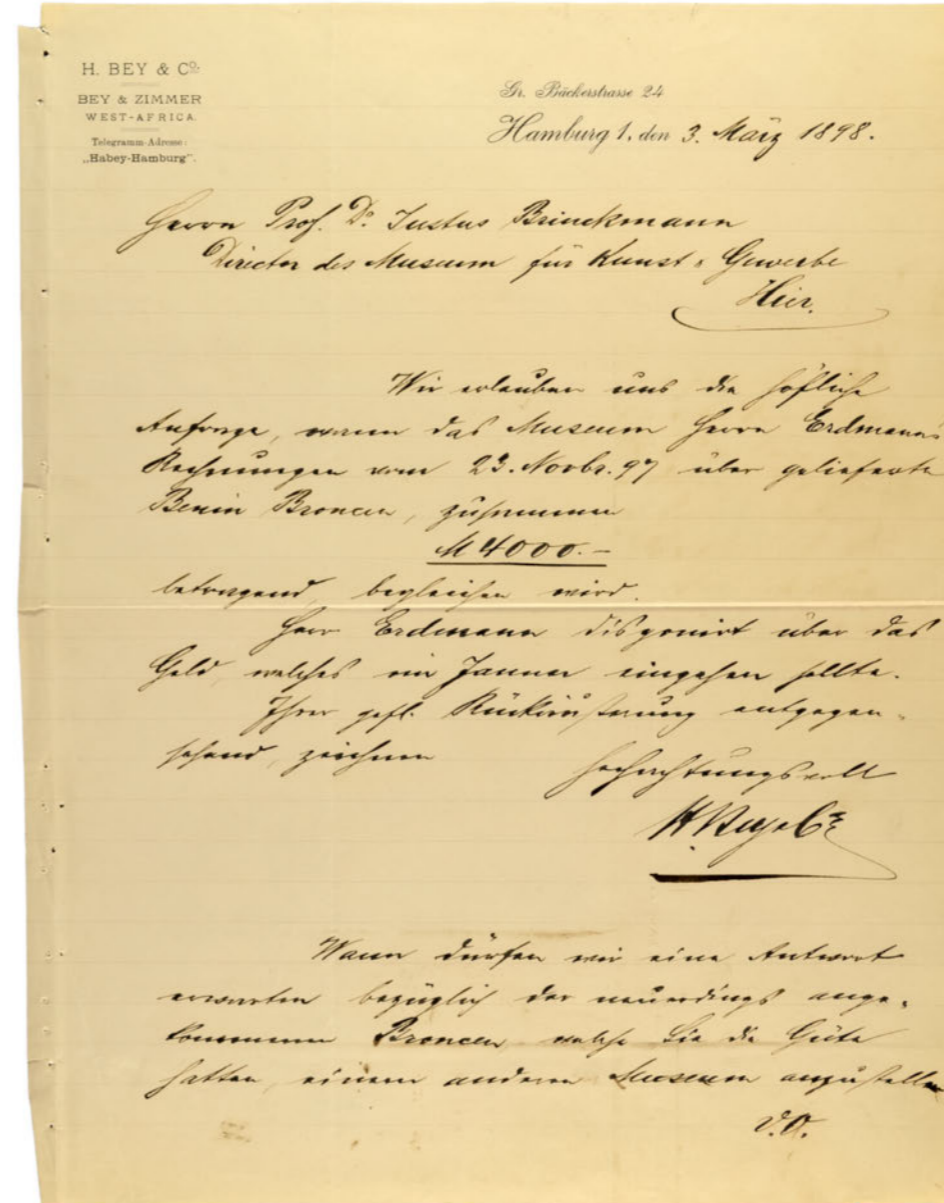 H. BEY & Co.
BEY & ZIMMER
WEST-AFRICA.
Telegramm-Adresse:
„Habey-Hamburg".
Gr. Bäckerstrasse 24
Hamburg 1, den 3. März 1898.
Herrn Prof. Dr. Justus Brinckmann
Director des Museum für Kunst & Gewerbe
Hier.
Wir erlauben uns die höfliche
Anfrage, wann das Museum Herrn Erdmann's
Rechnungen vom 23. Novbr. 97 über gelieferte
Benin Broncen, zusammen
M 4000.-
betragend, begleichen wird.
Herr Erdmann disponirt über das
Geld, welches im Januar eingehen sollte.
Ihrer gefl. Rückäusserung entgegen-
sehend, zeichnen
Hochachtungsvoll
H. Bey & Co
Wann dürfen wir eine Antwort
erwarten bezüglich der neuerdings ange-
kommenen Broncen, welche Sie die Güte
hatten, einem anderen Museum anzustellen
D.O.